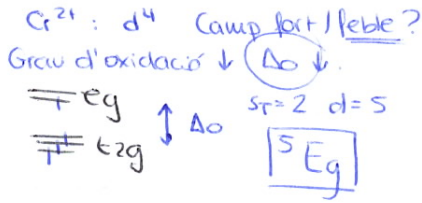 Cr²⁺ : d⁴ Camp fort / feble ?
Grau d'oxidació ↓ Δo ↓.
eg
Δo S_T = 2 d = 5
t2g
⁵Eg